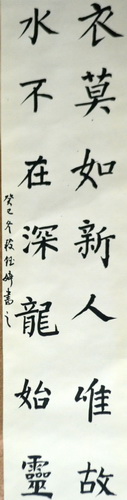 衣莫如新人唯故
水不在深龍始靈
癸巳冬段倖嶂書之